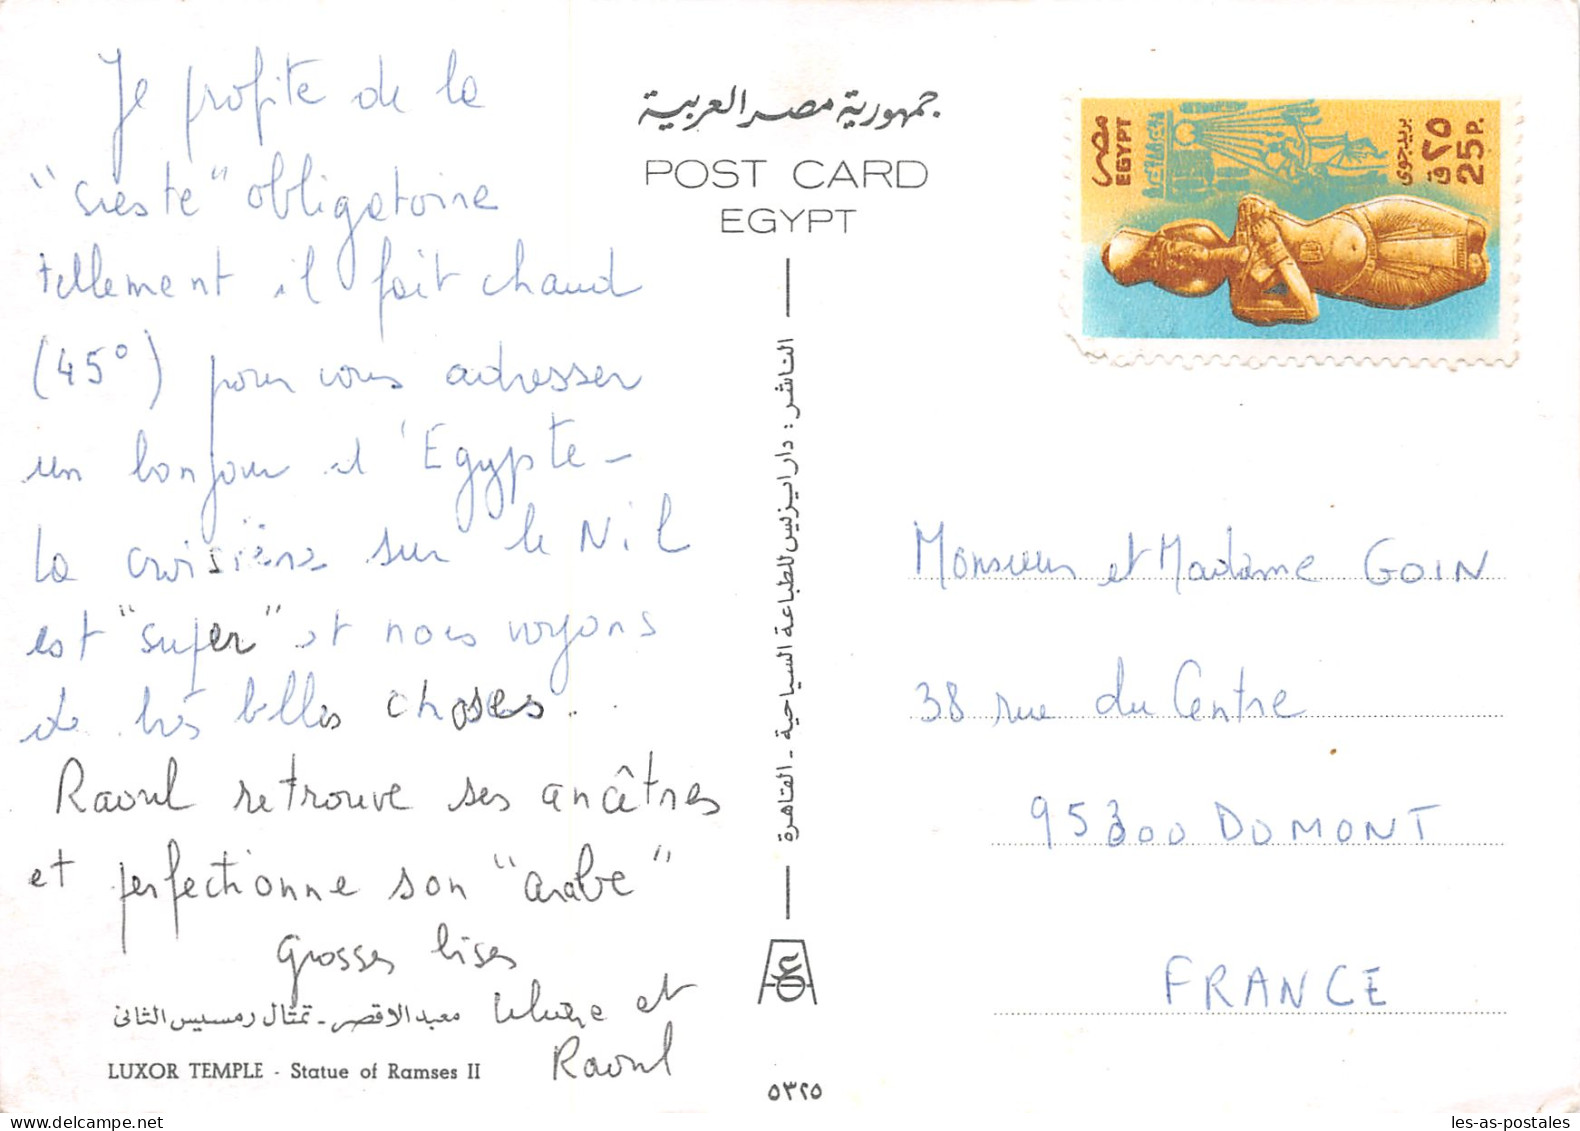 Je profite de la
"sieste" obligatoire
tellement il fait chaud
(45°) pour vous adresser
un bonjour d'Egypte -
La croisière sur le Nil
est "super" et nous voyons
de très belles choses...
Raoul retrouve ses ancêtres
et perfectionne son "arabe"
Grosses bises
et
Raoul
معبد الاقصر - تمثال رمسيس الثانى
LUXOR TEMPLE - Statue of Ramses II
جمهورية مصر العربية
POST CARD
EGYPT
الناشر : دار ايزيس للطباعة السياحية - القاهرة
٥٣٢٥
مصر
EGYPT
بريد جوى
٢٥ ق
25 P.
Monsieur et Madame GOIN
38 rue du Centre
95300 DOMONT
FRANCE
les-as-postales